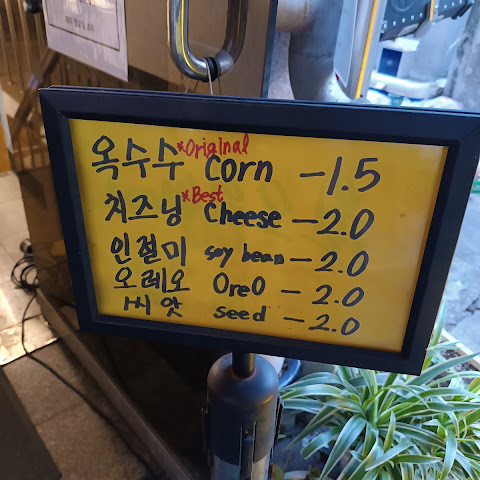 옥수수 *Original Corn - 1.5
치즈닝 *Best Cheese - 2.0
인절미 soy bean - 2.0
오레오 OreO - 2.0
씨앗 seed - 2.0